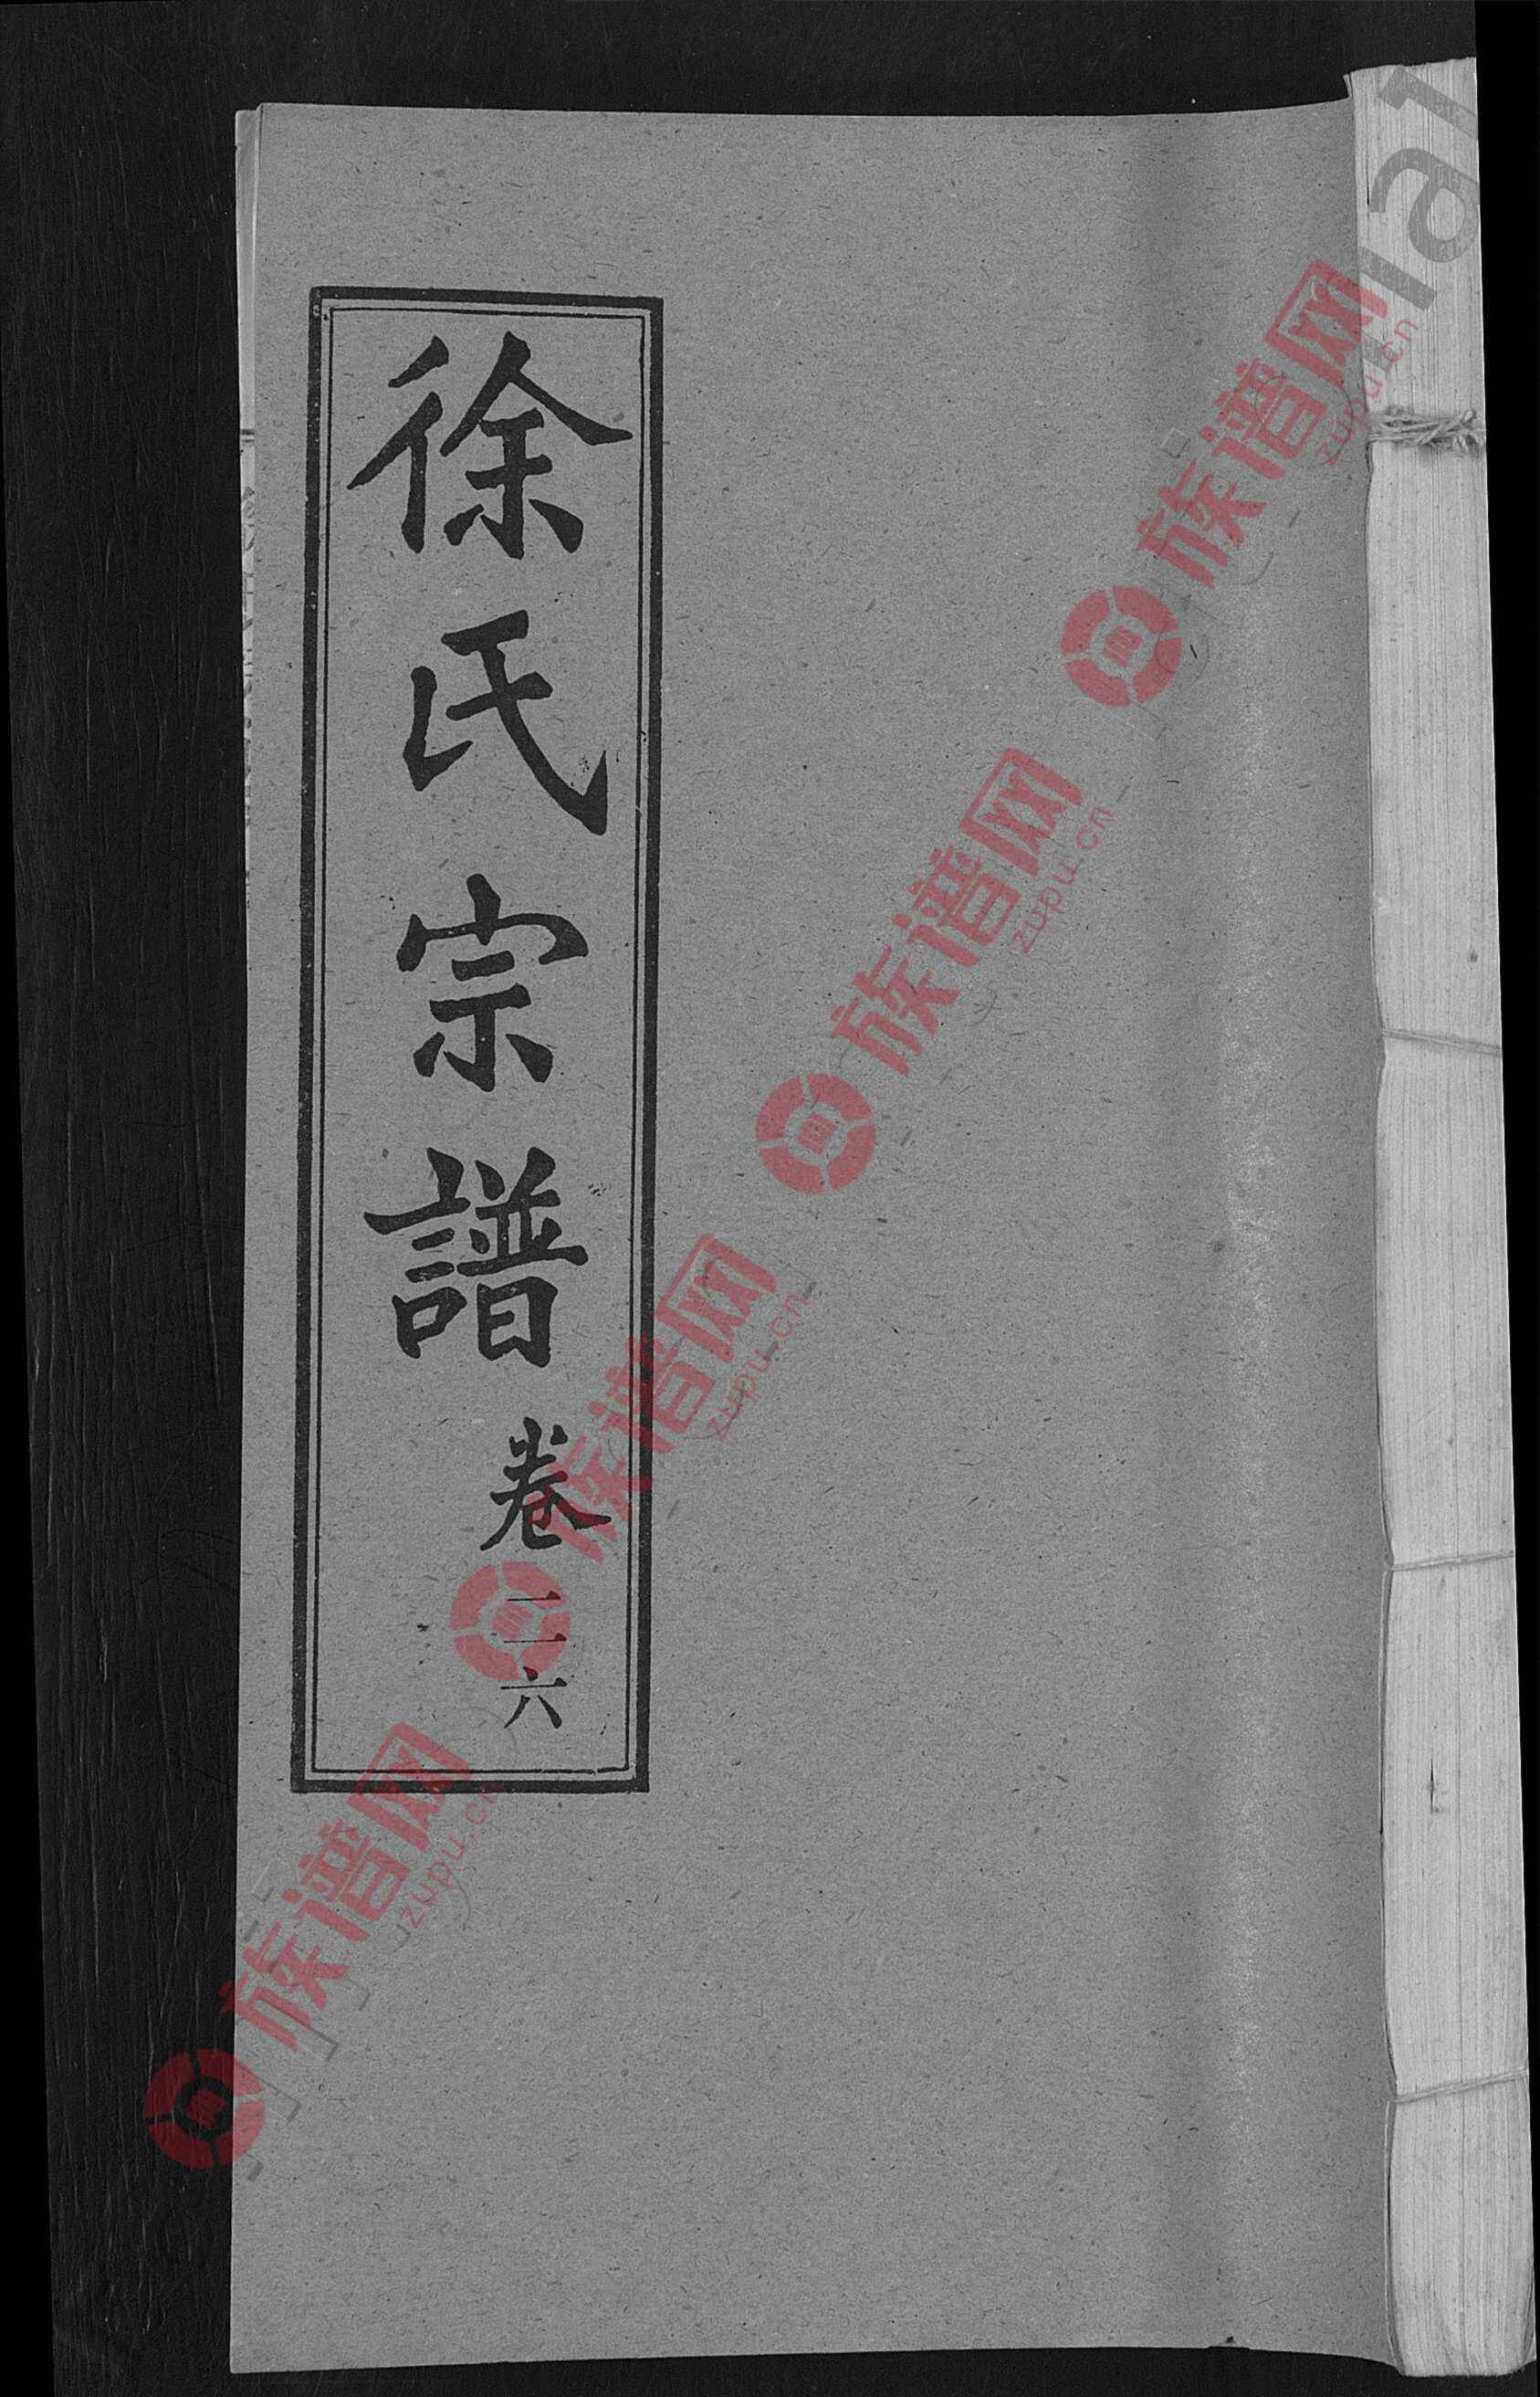 徐氏宗譜 卷二六
族谱网 zupu.cn
族谱网 zupu.cn
族谱网 zupu.cn
族谱网 zupu.cn